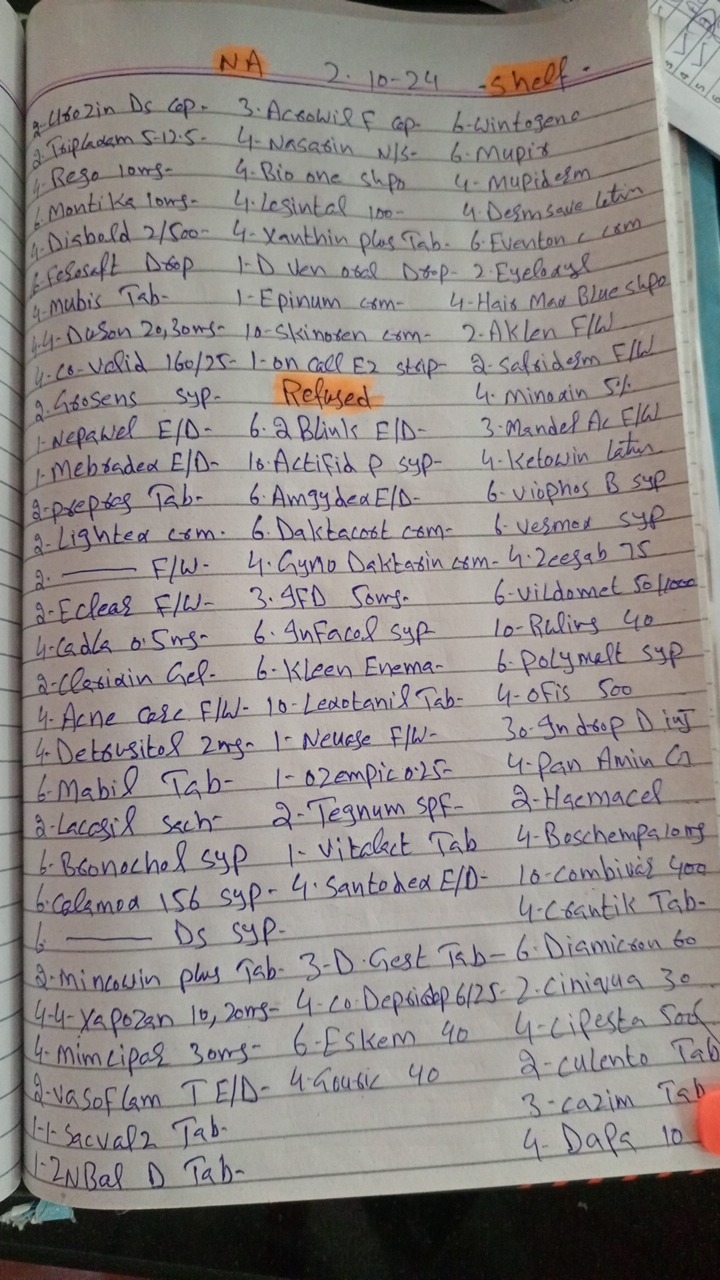 NA 2-10-24 -Shelf-
2-Urozin Ds Cap-
2-Tripladam 5-12.5-
4-Rego 10mg-
6-Montika 10mg-
4-Diabold 2/500-
2-Ferosoft Drop
4-Mubis Tab-
4-4-Duson 20,30mg-
4-Co-valid 160/25-
2-Grosens syp-
1-Nepawel E/D-
1-Mebradex E/D-
2-prepreg Tab-
2-Lightex crm-
2- —— F/W-
2-Eclear F/W-
4-Cadla 0.5mg-
2-Clarixin Gel-
4-Acne Care F/W-
4-Detrusitol 2mg-
6-Mabil Tab-
2-Lacasil sach-
6-Bronochol syp
6-Calamox 156 syp-
6 —— Ds syp-
2-Mincowin plus Tab-
4-4-Xapozan 10,20mg-
4-Mimcipar 30mg-
2-Vasoflam T E/D-
1-1-Sacvalz Tab-
1-2NBal D Tab-
3-Acrowil F Cap-
4-Nasarin N/S-
4-Bio one shpo
4-Lesintal 100-
4-Xanthin plus Tab-
1-D Ven oral Drop-
1-Epinum crm-
10-Skinoren crm-
1-on Call EZ strip-
Refused
6-2 Blink E/D-
10-Actifid P syp-
6-Amgydex E/D-
6-Daktacort crm-
4-Gyno Daktarin crm-
3-IFD 50mg-
6-Infacol syp
6-Kleen Enema-
10-Lexotanil Tab-
1-Neuage F/W-
1-Ozempic 0.25-
2-Tegnum SPF-
1-Vitalect Tab
4-Santodex E/D-
3-D-Gest Tab-
4-Co-Depricap 6/25-
6-Eskem 40
4-Gouric 40
6-Wintogeno
6-Mupir
4-Mupiderm
4-Dermsave lotin
6-Eventon c crm
2-Eyelodyl
4-Hair Max Blue shpo
2-Aklen F/W
2-Safriderm F/W
4-Minoxin 5%
3-Mandel Ac F/W
4-Ketowin lotin
6-Viophos B syp
6-Vesmox syp
4-Zeegab 75
6-Vildomet 50/1000
10-Ruling 40
6-Polymalt syp
4-Ofis 500
30-Indrop D inj
4-Pan Amin G
2-Haemacel
4-Boschempa 10mg
10-Combivair 400
4-Crantik Tab-
6-Diamicron 60
2-Ciniqua 30
4-Cipesta 500
2-Culento Tab
3-Cazim Tab
4-Dapa 10